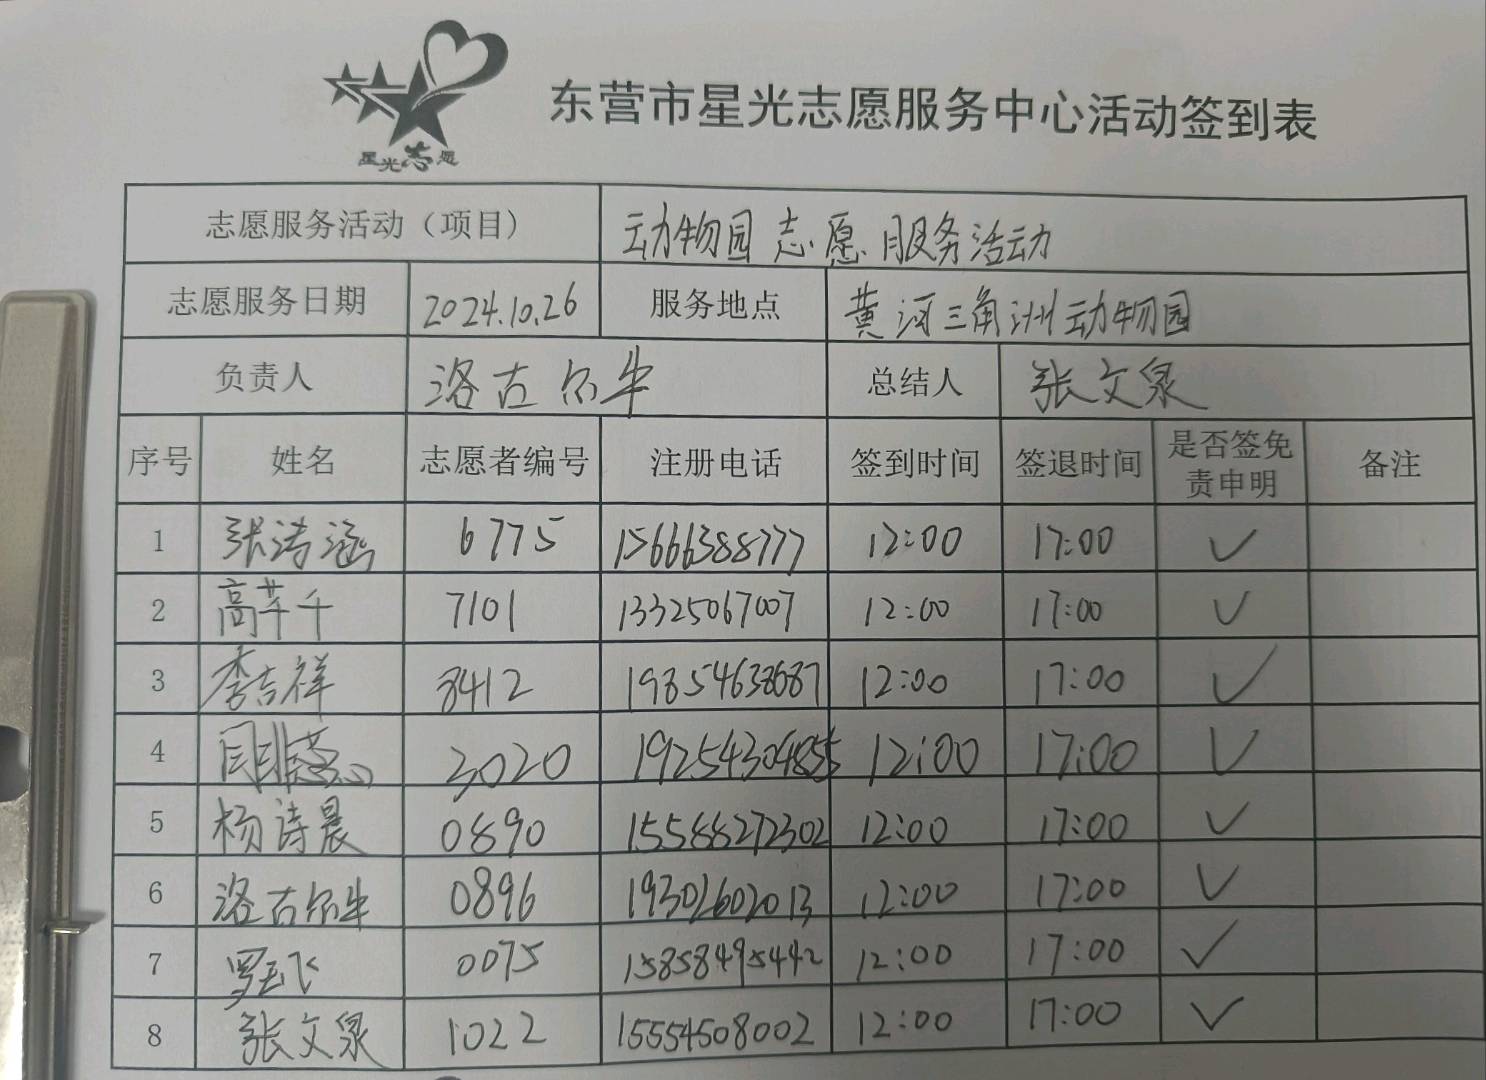 星光志愿
东营市星光志愿服务中心活动签到表
志愿服务活动（项目） 动物园志愿服务活动
志愿服务日期 2024.10.26 服务地点 黄河三角洲动物园
负责人 洛古尔牛 总结人 张文泉
序号 姓名 志愿者编号 注册电话 签到时间 签退时间 是否签免责申明 备注
1 张涛涵 6775 15666388777 12:00 17:00 ✓
2 高芊千 7101 13325067007 12:00 17:00 ✓
3 李吉祥 8412 19854638687 12:00 17:00 ✓
4 3020 19254304855 12:00 17:00 ✓
5 杨诗晨 0890 15588272302 12:00 17:00 ✓
6 洛古尔牛 0896 19302602013 12:00 17:00 ✓
7 罗玉飞 0075 15858495442 12:00 17:00 ✓
8 张文泉 1022 15554508002 12:00 17:00 ✓